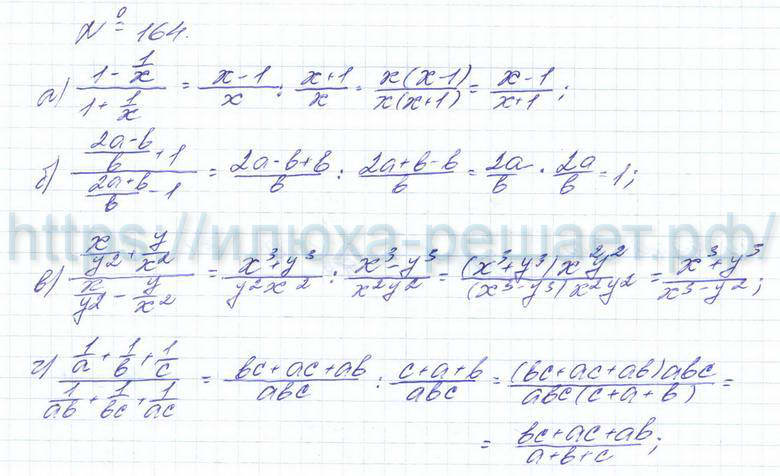 № 164.
а) (1 - 1/x)/(1 + 1/x) = (x-1)/x : (x+1)/x = x(x-1)/x(x+1) = (x-1)/(x+1);
б) ((2a-b)/b + 1)/((2a+b)/b - 1) = (2a-b+b)/b : (2a+b-b)/b = 2a/b : 2a/b = 1;
https://илюха-решает.рф/
в) (x/y² + y/x²)/(x/y² - y/x²) = (x³+y³)/(y²x²) : (x³-y³)/(x²y²) = (x³+y³)x²y²/(x³-y³)x²y² = (x³+y³)/(x³-y²);
г) (1/a + 1/b + 1/c)/(1/ab + 1/bc + 1/ac) = (bc+ac+ab)/abc : (c+a+b)/abc = (bc+ac+ab)abc/abc(c+a+b) =
= (bc+ac+ab)/(a+b+c);